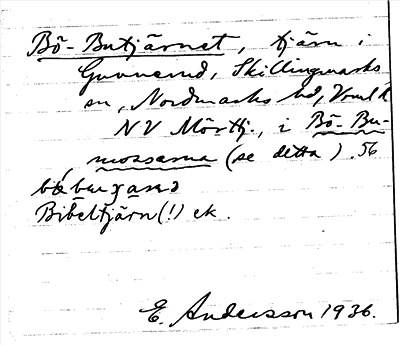 Bö-Butjärnet, tjärn i
Gunnerud, Skillingmarks
sn, Nordmarks hd, Vrml
NV Mörttj., i Bö-Bu-
mossarna (se detta). 56
Bibeltjärn (!) ek.
E. Andersson 1936.